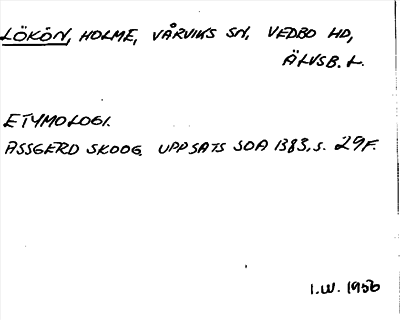 LÖKÖN, HOLME, VÅRVIKS SN, VEDBO HD,
ÄLVSB. L.
ETYMOLOGI.
ASSGERD SKOOG UPPSATS SOA 1383, S. 29F.
I.W. 1956